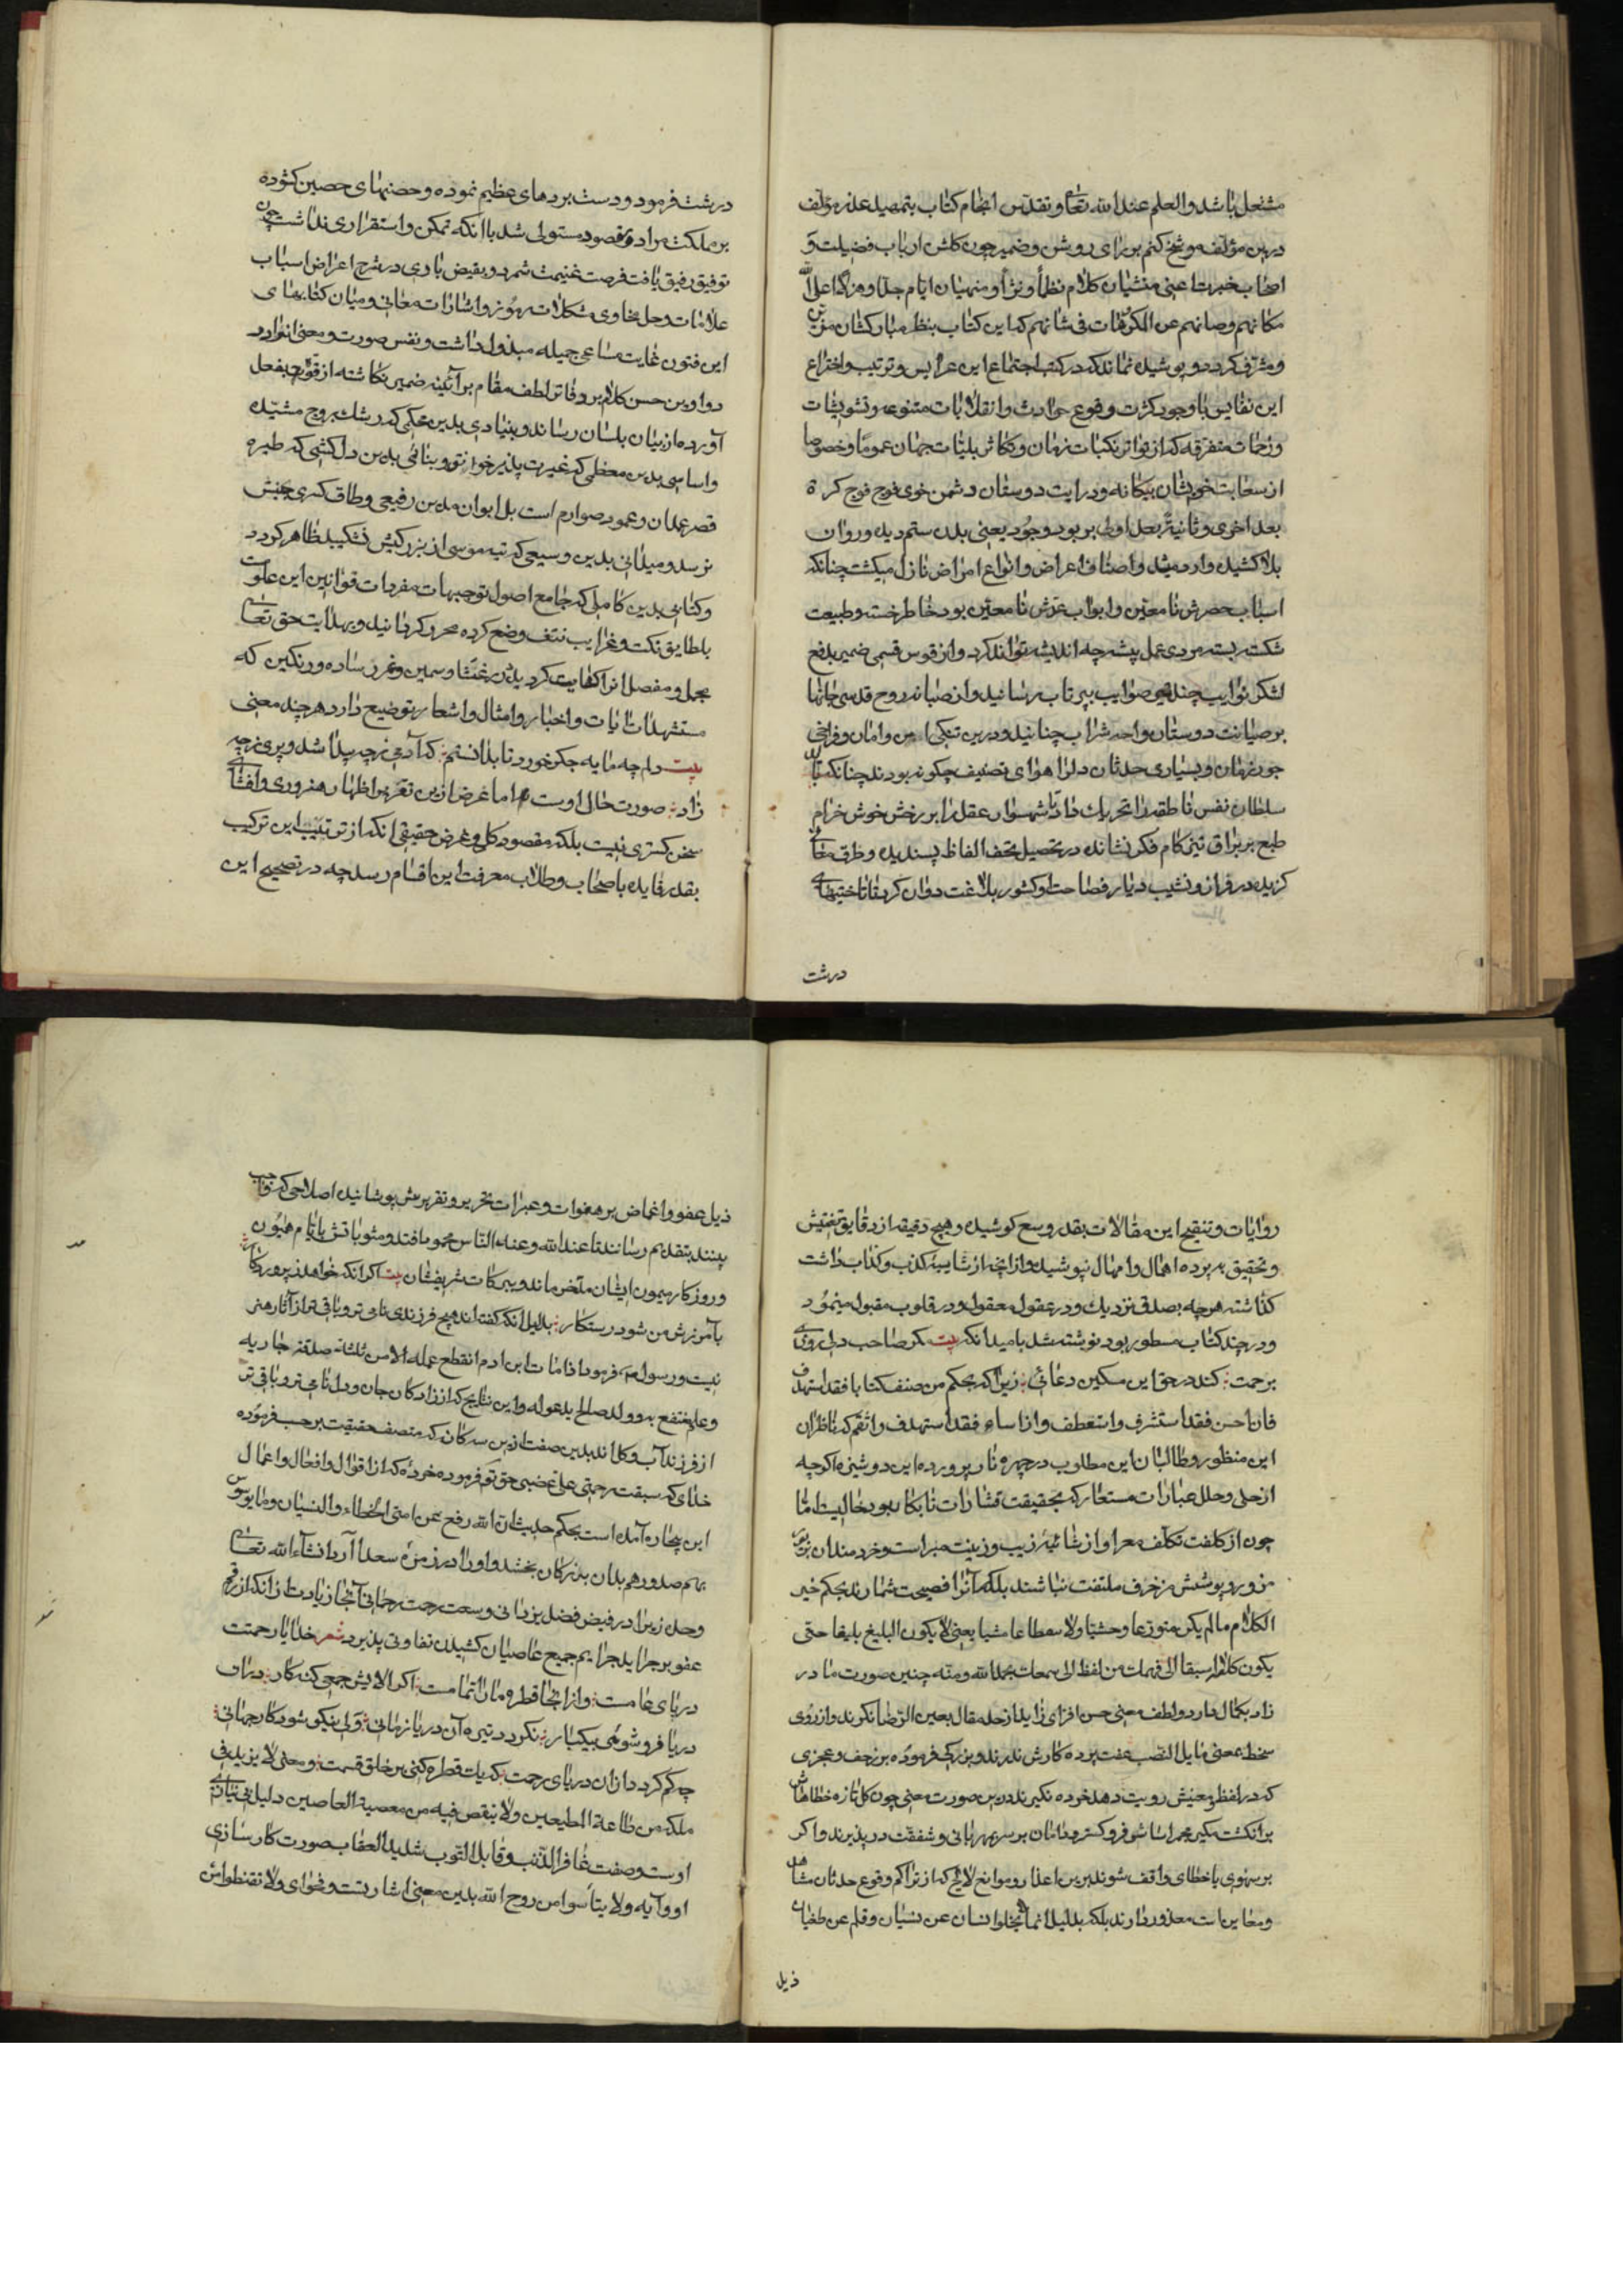 مشتعل باشد والعلم عند الله تعالی وتقدس انجام کتاب بتمهید عذر مؤلف
درین مؤلف موشح کنم بر رای روشن وضمیر چون کلشن ارباب فضیلت و
اصحاب خبرت اعنی منشیان کلام نظماً ونثراً ومنهیان ایام جداً وهزلاً اعلی الله
مکانهم وصانهم عن المکروهات فی شانهم که این کتاب بنظر مبارکشان مزین
ومشرف کردد پوشیده نماند که در کتب اجتماع این عرایس وترتیب واختراع
این نفایس با وجود کثرت وقوع حوادث وانقلابات متنوعه وتشویشات
وزحمات متفرقه که از تواتر نکبات زمان وتکاثر بلیات جهان عموماً وخصوصاً
از سعایت خویشان بیکانه ودرایت دوستان دشمن خوی فوج فوج کرة
بعد اخری وثانیة بعد اولی بر بود وجود یعنی بلدن ستم دیده وروان
بلا کشیده وارد میشد واصناف اعراض وانواع امراض نازل میکشت چنانکه
اسباب حصرش نامعین وابواب عدش نامعین بود خاطر خسته وطبیعت
شکسته بسته مردی عمل پیشه چه اندیشه تواند کرد واز قوس قسی ضمیر بدفع
لشکر نوایب چند تیر صوایب بپرتاب رساند واز صبابه روح قدسی جانها
بر صیانت دوستان واحد شراب چنانید ودرین تنکی امن وامان وفراخی
جور زمان وبسیاری حدثان دلرا هوای تصنیف چکونه بود ند چنانکه تا
سلطان نفس ناطقه را تحریک داد تا شهسوار عقل را بر رخش خوش خرام
طبع بر براق تیز کام فکر نشانده در تحصیل تحف الفاظ پسندیده وطرف معانی
کزیده در فراز ونشیب دیار فصاحت وکشور بلاغت دوان کرد تا تاختنهای
درشت
درشت فرمود ودست بردهای عظیم نموده وحصنهای حصین کشوده
بر مملکت مراد ومقصود مستولی شد با آنکه تمکن واستقراری نداشت چون
توفیق رفیق یافت فرصت غنیمت شمرد وبفیض باری در شرح اعراض اسباب
علامات وحل فحاوی مشکلات رموز واشارات معانی ومیان کتابهای
این فنون غایت مساعی جمیله مبذول داشت ونفس صورت ومعنی انوار در
دواوین حسن کلام بر وفاتر لطف مقام بر آئینه ضمیر نکاشته از قوت بفعل
آورده از بیان بلسان رساند وبنیادی بدین محکمی که رشک بروج مشیده
واساسی بدین معظمی که غیرت پذیر خورنق وبنائی بدین دلکشی که طیره
قصر غمدان وعمود صوارم است بل ایوان بدین رفیعی وطاق کسری بجنبش
نرسد ومیدانی بدین وسیعی که تیه موسی از بزرکیش تنکیبد ظاهر کردد
وکتابی بدین کاملی که جامع اصول توجیهات مفردات قوانین این علومست
بلطایف نکت وغرایب نتف وضع کرده محرر کردانید وبهدایت حق تعالی
مجمل ومفصل انرا کفایت کرد بدرر غث وسمین وغرر ساده ورنکین که
مستشهدات آیات واخبار وامثال واشعار توضیع دارد هر چند معنی
بیت دلم چه مایه جکر خورد تا بدانستم که آدمی ز چه پیدا شد وپری ز چه
زاد صورت حال اوست اما غرض ازین تعریض اظهار هنروری وافشای
سخن کستری نیست بلکه مقصود کلی وغرض حقیقی انکه از ترتیب این ترکیب
بقدر فایده باصحاب وطلاب معرفت این اقسام رسد چه در تصحیح این
روایات وتنقیح این مقالات بقدر وسع کوشیده وهیچ دقیقه از دقایق تفتیش
وتحقیق بر پرده اهمال وامهال نپوشید واز انچه از شایبه کذب وکذاب داشت
کذاشته هر چه بصدق نزدیک ودر عقول معقول ودر قلوب مقبول مینمود
ودر چند کتاب مسطور بود نوشته شد بامید انکه بیت مکر صاحب دلی روزی
برحمت کند در حق این مسکین دعائی زیرا که بحکم من صنف کتابا فقد استهدف
فان احسن فقد استشرف واستعطف وان اساء فقد استهدف واثقم که ناظران
این منظور وطالبان این مطلوب در چهره ناز پرورده این دوشیزه اکرچه
از حلی وحلل عبارات مستعار که بحقیقت قشارات نابکار بود خالیست اما
چون از کلفت تکلف معرا واز شائبه زیب وزینت مبراست وخردمندان بزیور
مزور وپوشش مزخرف ملتفت نباشند بلکه آنرا فصیحت شمارند بحکم خیر
الکلام ما لم یکن متوزعا وحشیا ولا سقطا عامیا یعنی لا یکون البلیغ بلیغا حتی
یکون کلامه اسبق الی فهمک من لفظه الی سمعک بحمد الله ومنه چنین صورت مادر
زاد بکمال دارد ولطف معنی حسن افزای زاید از حد مقال بعین الرضا نکرند واز روی
سخط بمعنی مایل التعصب عفت پرده کارش ندرند وبزرکی فرموده بزخف وعجزی
که در لفظ ومعنیش رویت دهد خرده نکیرند درین صورت معنی چون کل تازه خطاهاش
بر انکشت مکیر بحر آسا شو فرو کستر ودامان بر سر مهربانی وشفقت در پذیرند واکر
بر سهوی یا خطای واقف شوند برین اعذار وموانع لایح که از تراکم وقوع حدثان مشاهد
ومعاین است معذور دارند بلکه بدلیل انما یخلو انسان عن نسیان وقلم عن طغیان
ذیل
ذیل عفو واغماض بر هفوات وعثرات تحریر وتقریرش پوشانیده اصلاحی که واجب
بینند بتقدیم رسانند تا عند الله وعند الناس محمود افتد ومثوباتش بایام همایون
وروزکار میمون ایشان ملتحق ماند وببرکات شریفشان بیت اکر انکه خواهد ز پروردکار
بآمرزش من شود رستکار بدلیل انکه کفته اند هیچ فرزندی نامی تر وباقی تر از آثار هنر
نیست ورسول فرمود اذا مات ابن ادم انقطع عمله الا من ثلثة صدقة جاریه
وعلم ینتفع به وولد صالح یدعو له واین نتایج که از زادکان جان ودل نامی تر وباقی تر
از فرزند آب وکل اند بدین صفت ازین سه کانه که متصف حقیقت بر حسب فرموده
خدای که سبقت رحمتی علی غضبی حق تو فرموده خرده که از اقوال وافعال واعمال
این بیچاره آمده است بحکم حدیث ان الله رفع عن امتی الخطاء والنسیان وما یوسوس
بهم صدورهم بدان بزرکان بخشد واورا در زمره سعدا آرد انشاء الله تعالی
وحده زیرا در فیض فضل یزدانی وسعت رحمت رحمانی آنجا زیادت از انکه از رقم
عفو بر جراید جرایم جمیع عاصیان کشیدن تفاوتی پذیرد شعر خدایا رحمتت
دریای عامست وز انجا قطره ما را تمامست اکر الایش جمعی کنه کار در آن
دریا فرو شوئی بیکبار نکردد تیره آن دریا زمانی ولی نیکو شود کار جهانی
چه کم کردد از ان دریای رحمت که یک قطره کنی بر خلق قسمت ومعنی لا یزید فی
ملکه من طاعة المطیعین ولا ینقص فیه من معصیة العاصین دلیل بی نیازی
اوست وصفت غافر الذنب وقابل التوب شدید العقاب صورت کارسازی
او وآیه ولا یتأسوا من روح الله بدین معنی اشارتست وفحوای ولا تقنطوا من